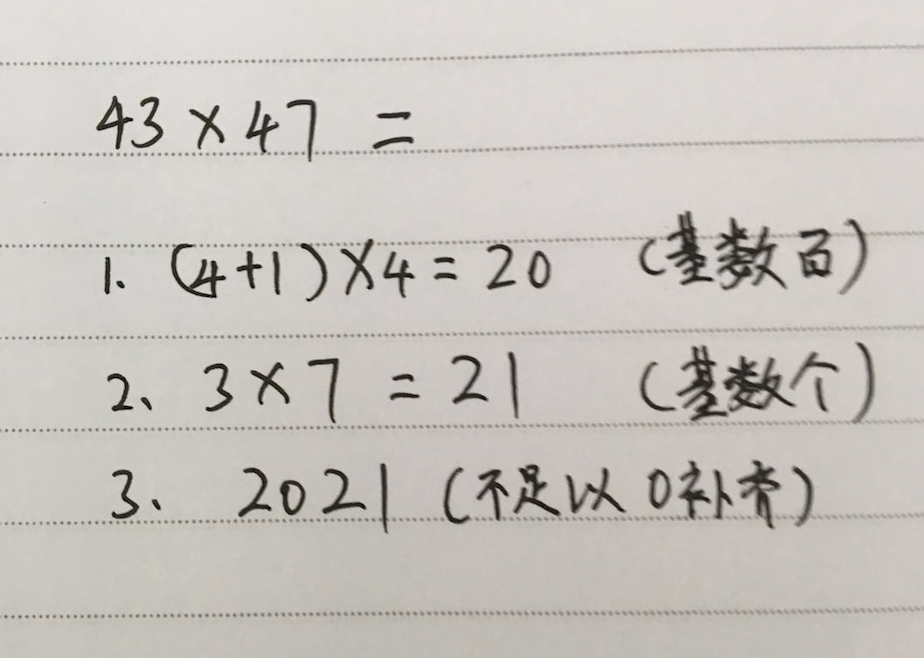 43×47 =
1. (4+1)×4=20 (基数百)
2、3×7=21 (基数个)
3、2021(不足以0补齐)